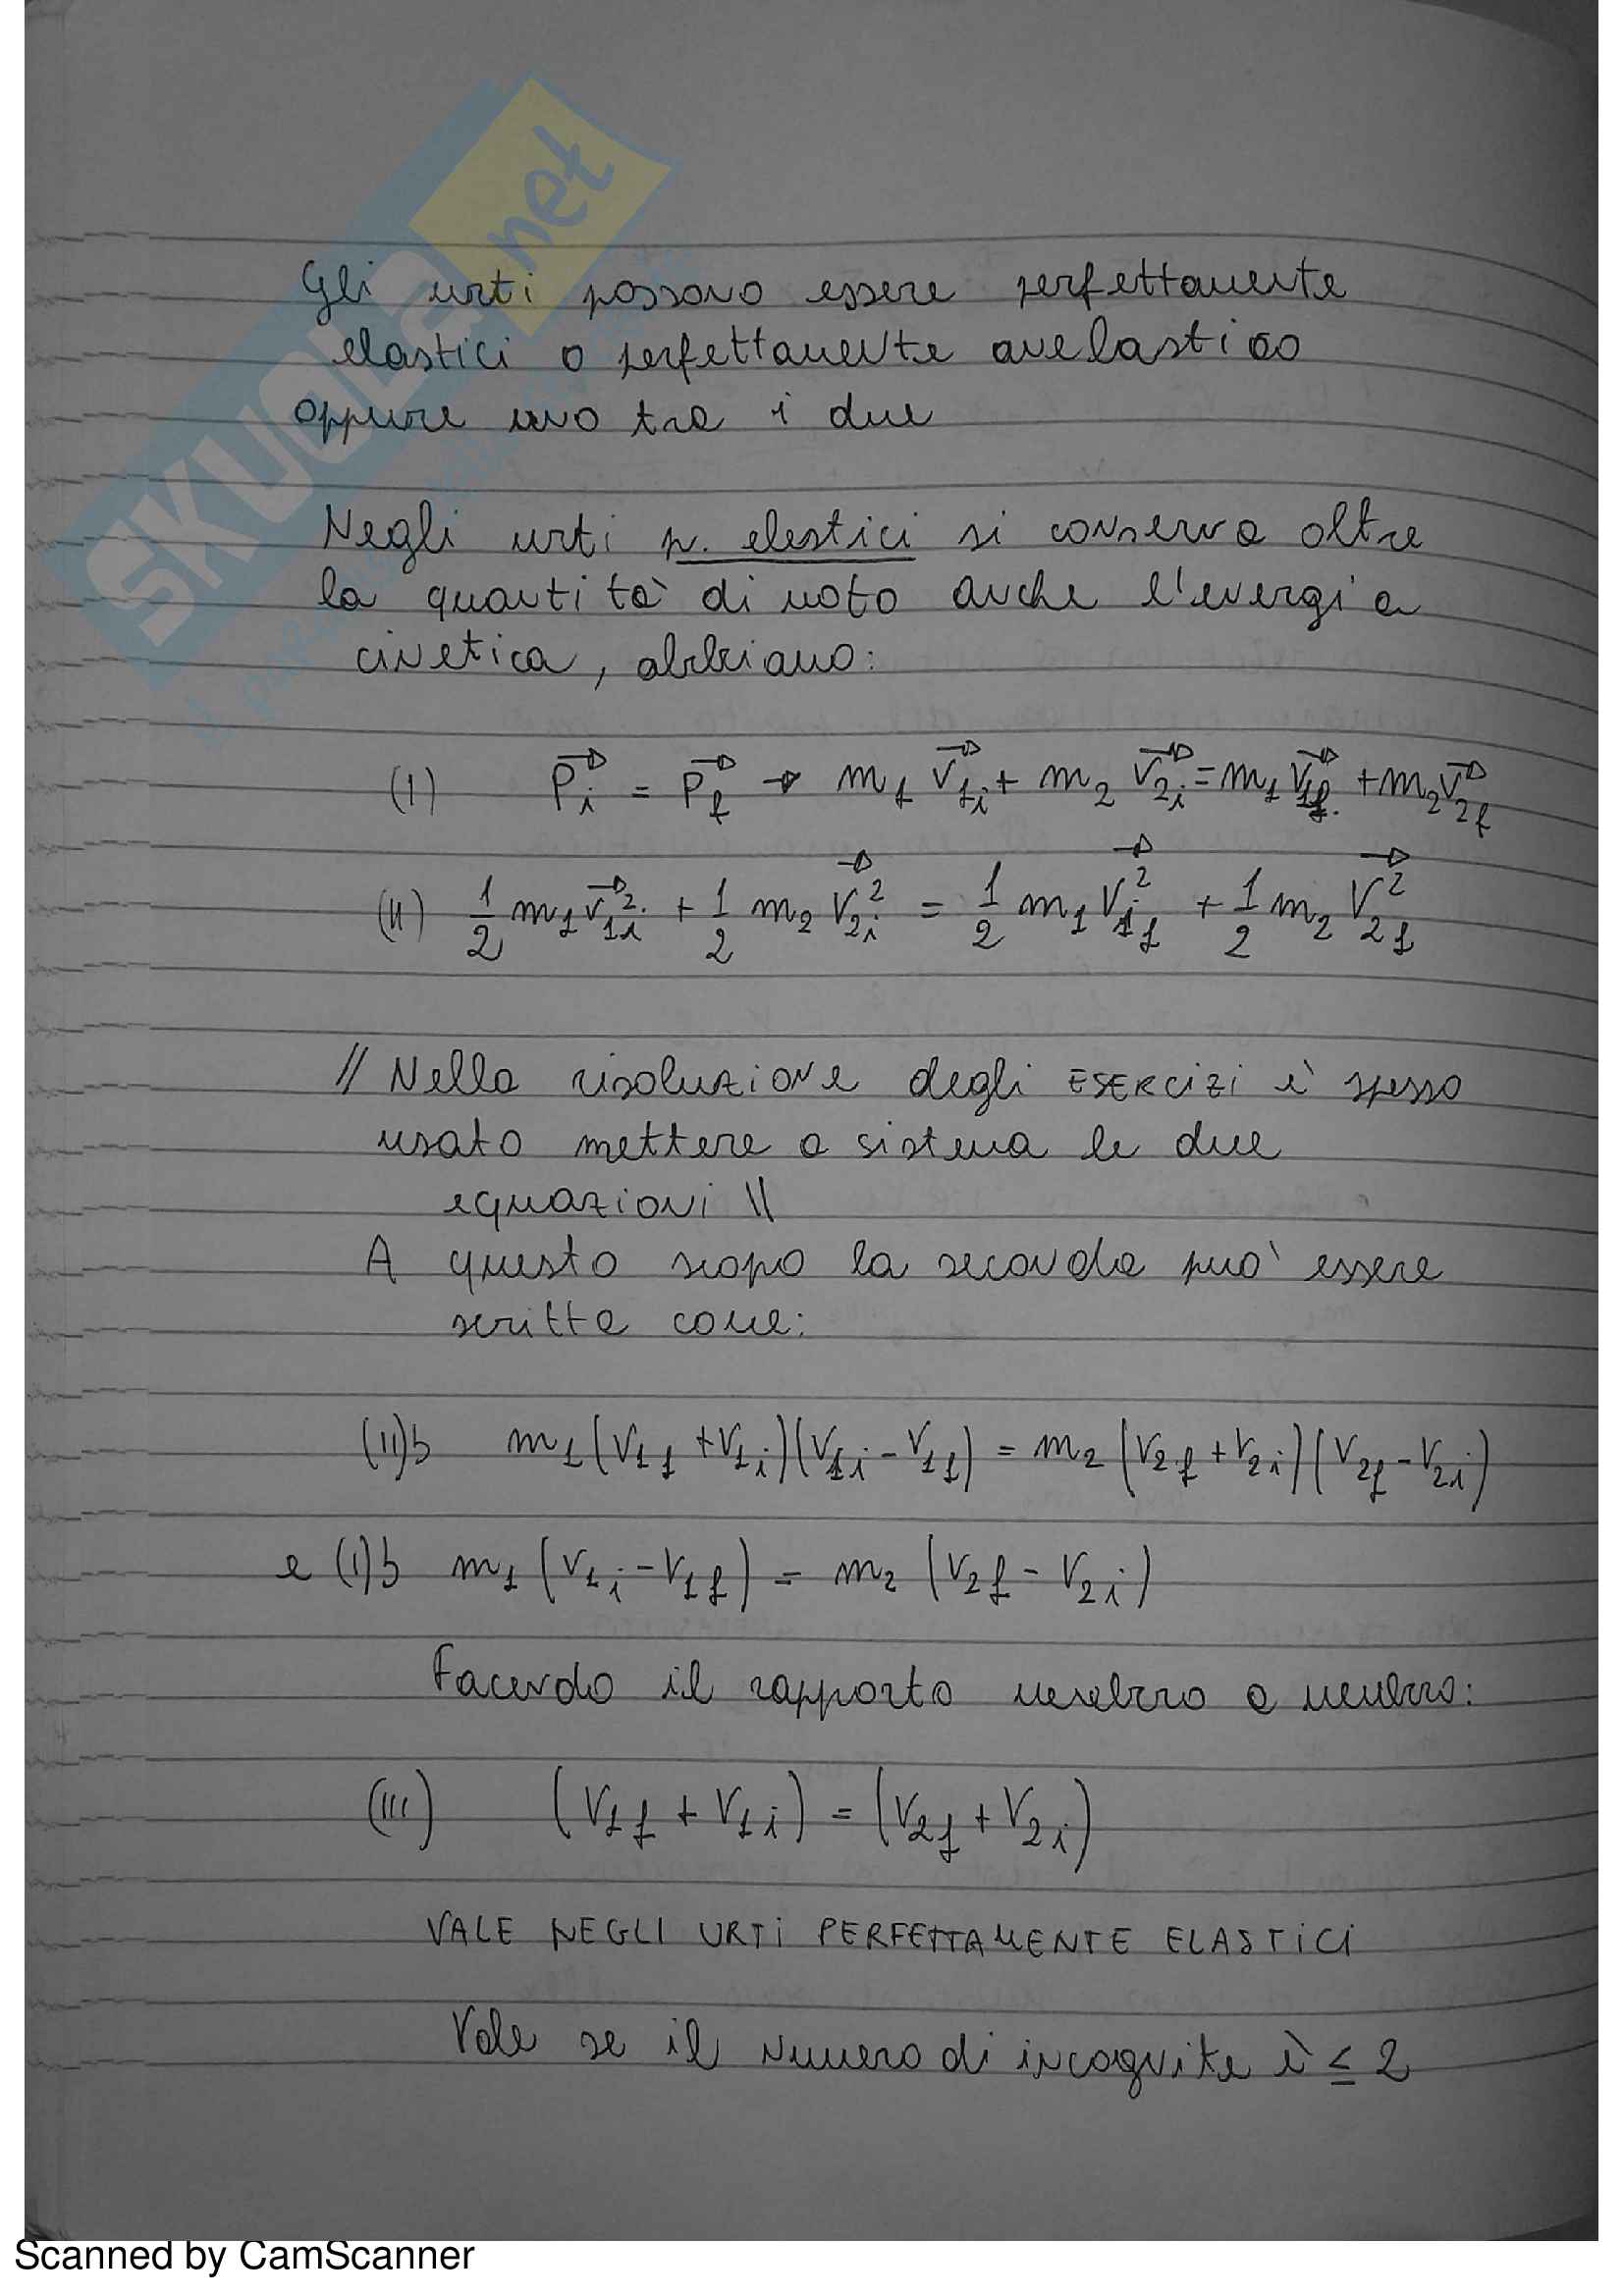 SKUOLA.net
Gli urti possono essere perfettamente
elastici o perfettamente anelastico
oppure uno tra i due
Negli urti p. elastici si conserva oltre
la quantità di moto anche l'energia
cinetica, abbiamo:
(I) P⃗i = P⃗f → m1 v⃗1i + m2 v⃗2i = m1 v⃗1f + m2 v⃗2f
(II) 1/2 m1 v⃗1i² + 1/2 m2 v⃗2i² = 1/2 m1 v⃗1f² + 1/2 m2 v⃗2f²
// Nella risoluzione degli ESERCIZI è spesso
usato mettere a sistema le due
equazioni \\
A questo scopo la seconda può essere
scritta come:
(II)b m1 (V1f + V1i)(V1i - V1f) = m2 (V2f + V2i)(V2f - V2i)
e (I)b m1 (V1i - V1f) = m2 (V2f - V2i)
Facendo il rapporto membro a membro:
(III) (V1f + V1i) = (V2f + V2i)
VALE NEGLI URTI PERFETTAMENTE ELASTICI
Vale se il numero di incognite è ≤ 2
Scanned by CamScanner